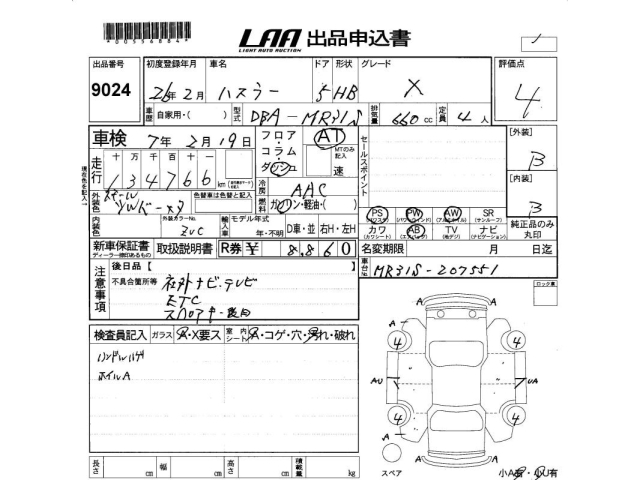 *00556864*
LAA 出品申込書
LIGHT AUTO AUCTION
出品番号 初度登録年月 車名 ドア 形状 グレード 評価点
9024 26年 2月 ハスラー 5 HB X 4
車歴 自家用・( ) 型式 DBA-MR31S 排気量 660 cc 定員 4 人
車検 7年 2月 19日 フロア コラム ダッシュ AT MTのみ記入 速
セールスポイント
[外装] B
走行 十 万 千 百 十 一
134766 km
[内装] B
冷房 AAC
外装色 色替車は色替と記入
燃料 ガソリン・軽油・( )
PS PW AW SR
(パワステ) (パワーウインド) (アルミホイール) (サンルーフ)
カワ AB TV ナビ
(カワシート) (エアバック) (地デジ) (ナビゲーション)
純正品のみ丸印
内装色 外装カラーNo. ZVC 輸入車 モデル年式 年・不明 D車・並 右H・左H
新車保証書 取扱説明書 R券 ¥ 8,860
ディーラー印のあるもの
名変期限 月 日迄
車台No. MR31S-207551
注意事項 後日品【
不具合箇所等 社外ナビ・テレビ
ETC
ロック裏
検査員記入 ガラス A・X要ス 室内シート A・コゲ・穴・汚れ・破れ
ハンドルハゲ
ホイルA
A A
4 4
AU UA
4 4
A A
スペア
小A有・小U有
長さ cm 幅 cm 高さ cm 積載量 kg